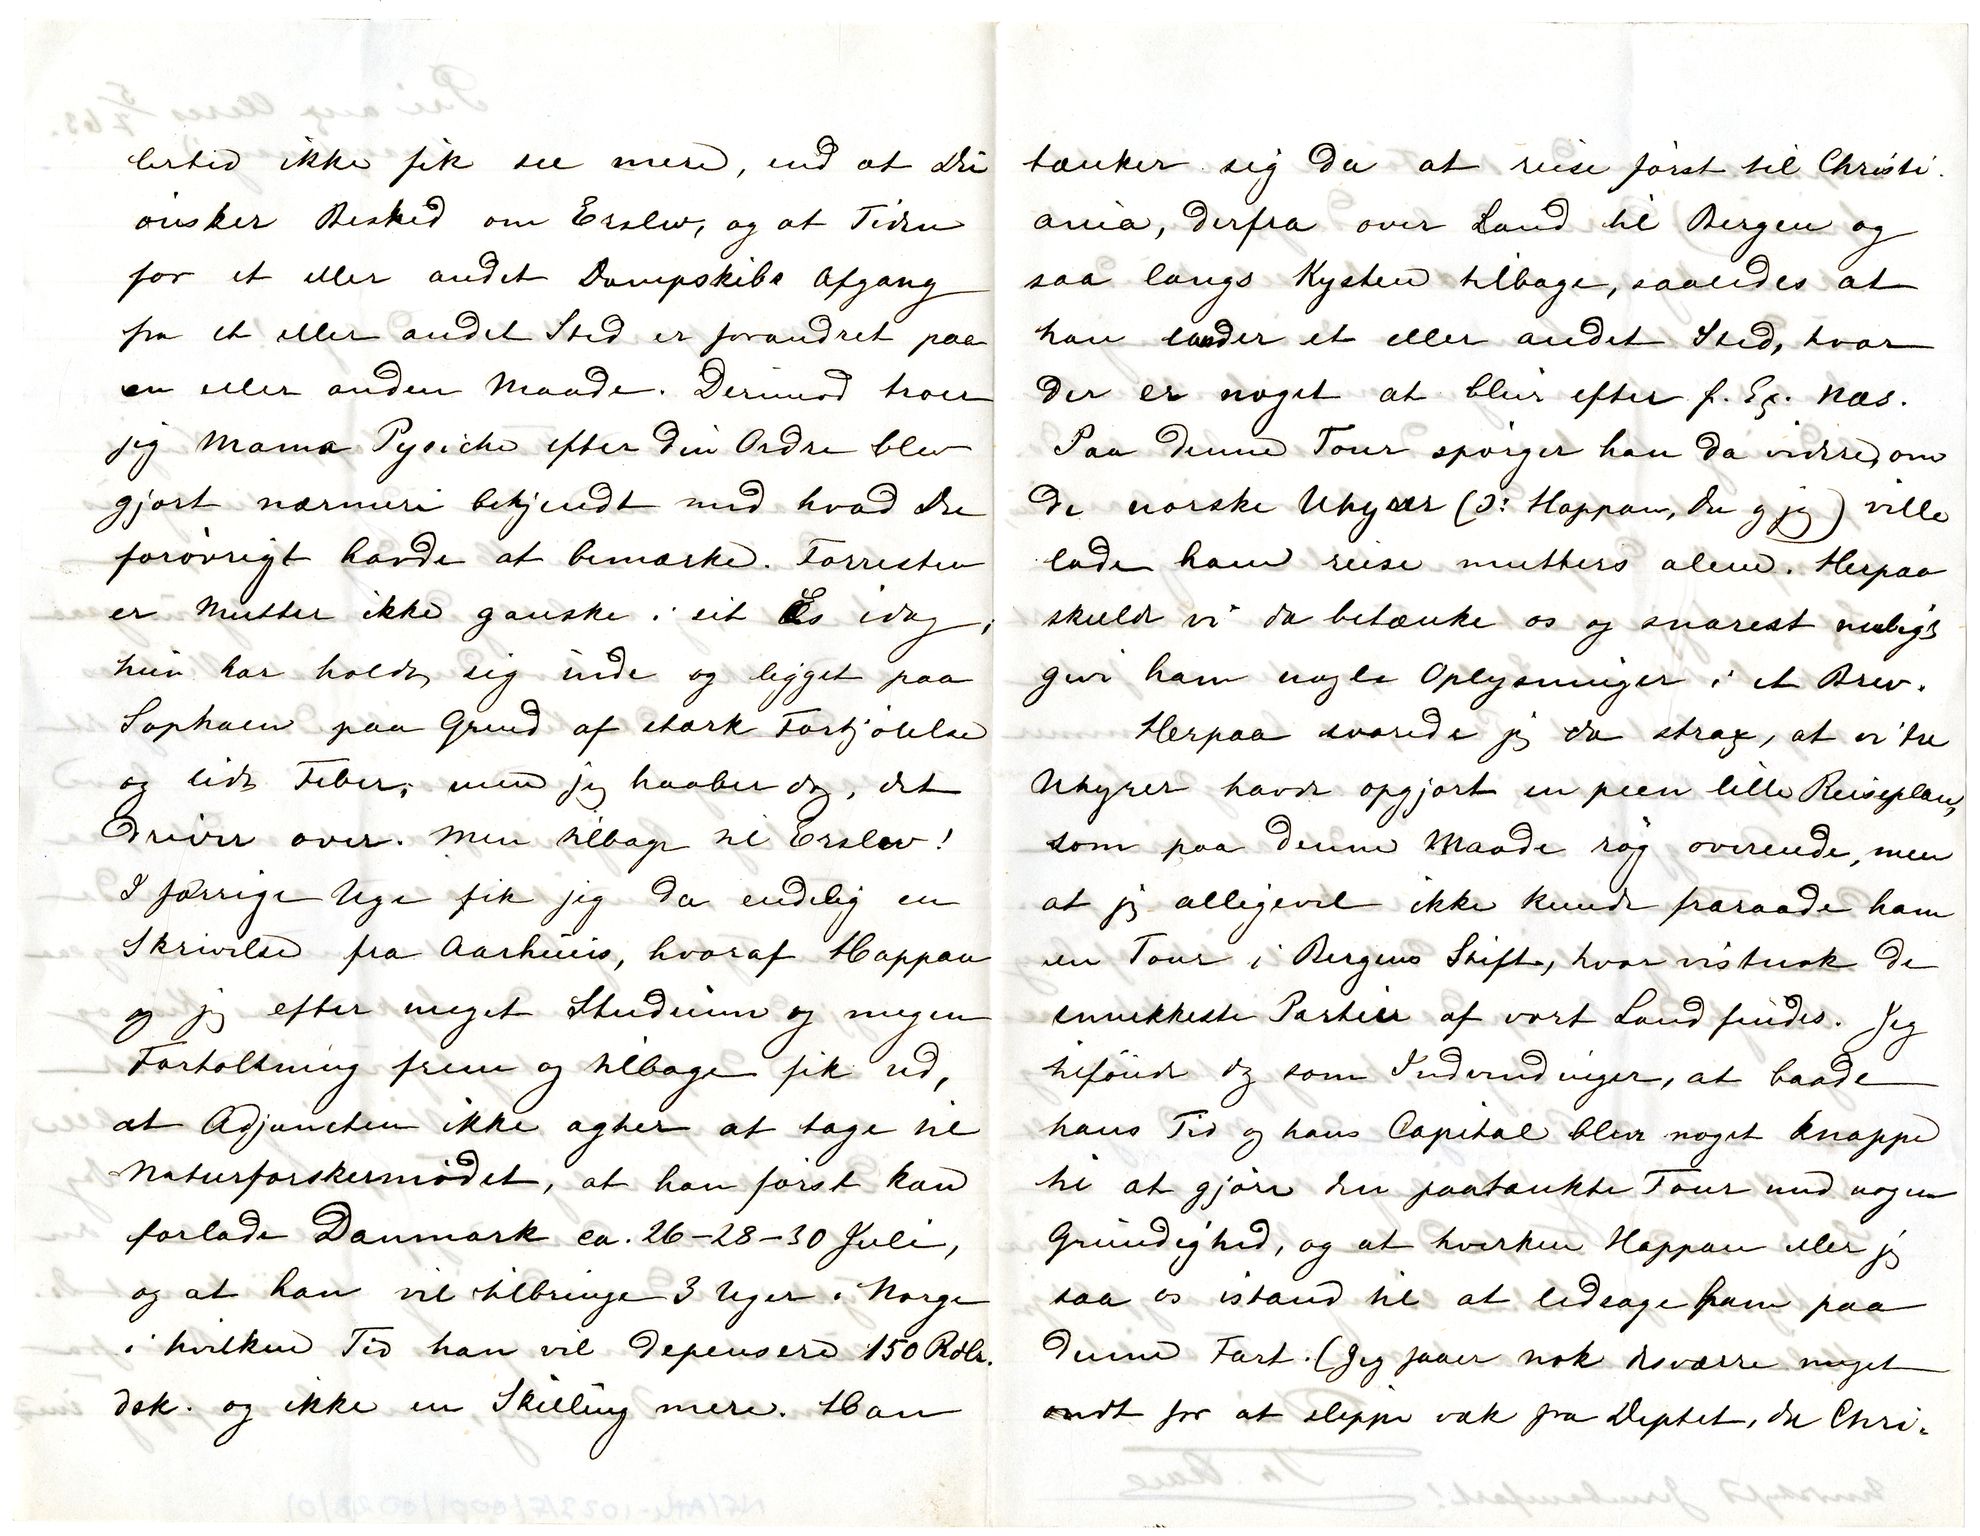 lertid ikke fik see mere, end at Du
ønsker Besked om Erslew, og at Tiden
for et eller andet Dampskibs Afgang
fra et eller andet Sted er forandret paa
en eller anden Maade. Derimod troer
jeg Mama Pysiche efter din Ordre blev
gjort nærmere bekjendt med hvad Du
forøvrigt havde at bemærke. Forresten
er Mutter ikke ganske i sit Es idag,
hun har holdt sig inde og ligget paa
Sophaen paa Grund af stærk Forkjølelse
og lidt Feber, men jeg haaber dog, det
driver over. Men tilbage til Erslew!
I forrige Uge fik jeg da endelig en
Skrivelse fra Aarhuus, hvoraf Happau
og jeg efter meget Studium og megen
Fortolkning frem og tilbage fik ud,
at Adjuncten ikke agter at tage til
Naturforskermødet, at han først kan
forlade Danmark ca. 26-28-30 Juli,
og at han vil tilbringe 3 Uger i Norge
i hvilken Tid han vil depensere 150 Rdlr.
dsk. og ikke en Skilling mere. Han
tænker sig da at reise først til Christi-
ania, derfra over Land til Bergen og
saa langs Kysten tilbage, saaledes at
han lander et eller andet Sted, hvor
der er noget at blive efter f. Ex. Næs.
Paa denne Tour spørger han da videre, om
de norske Uhyrer (ɔ: Happau, Du og jeg) ville
lade ham reise mutters alene. Herpaa
skulde vi da betænke os og snarest muligt
give ham nogle Oplysninger i et Brev.
Herpaa svarede jeg da strax, at vi tre
Uhyrer havde opgjort en peen lille Reiseplan,
som paa denne Maade røg overende, men
at jeg alligevel ikke kunde fraraade ham
en Tour i Bergens Stift, hvor vistnok de
smukkeste Partier af vort Land findes. Jeg
tilføiede dog som Indvendinger, at baade
hans Tid og hans Capital blev noget knappe
til at gjøre den paatænkte Tour med nogen
Grundighed, og at hverken Happau eller jeg
saa os istand til at ledsage ham paa
denne Fart. (Jeg faaer nok desværre meget
ondt for at slippe væk fra Deptet, da Chri-